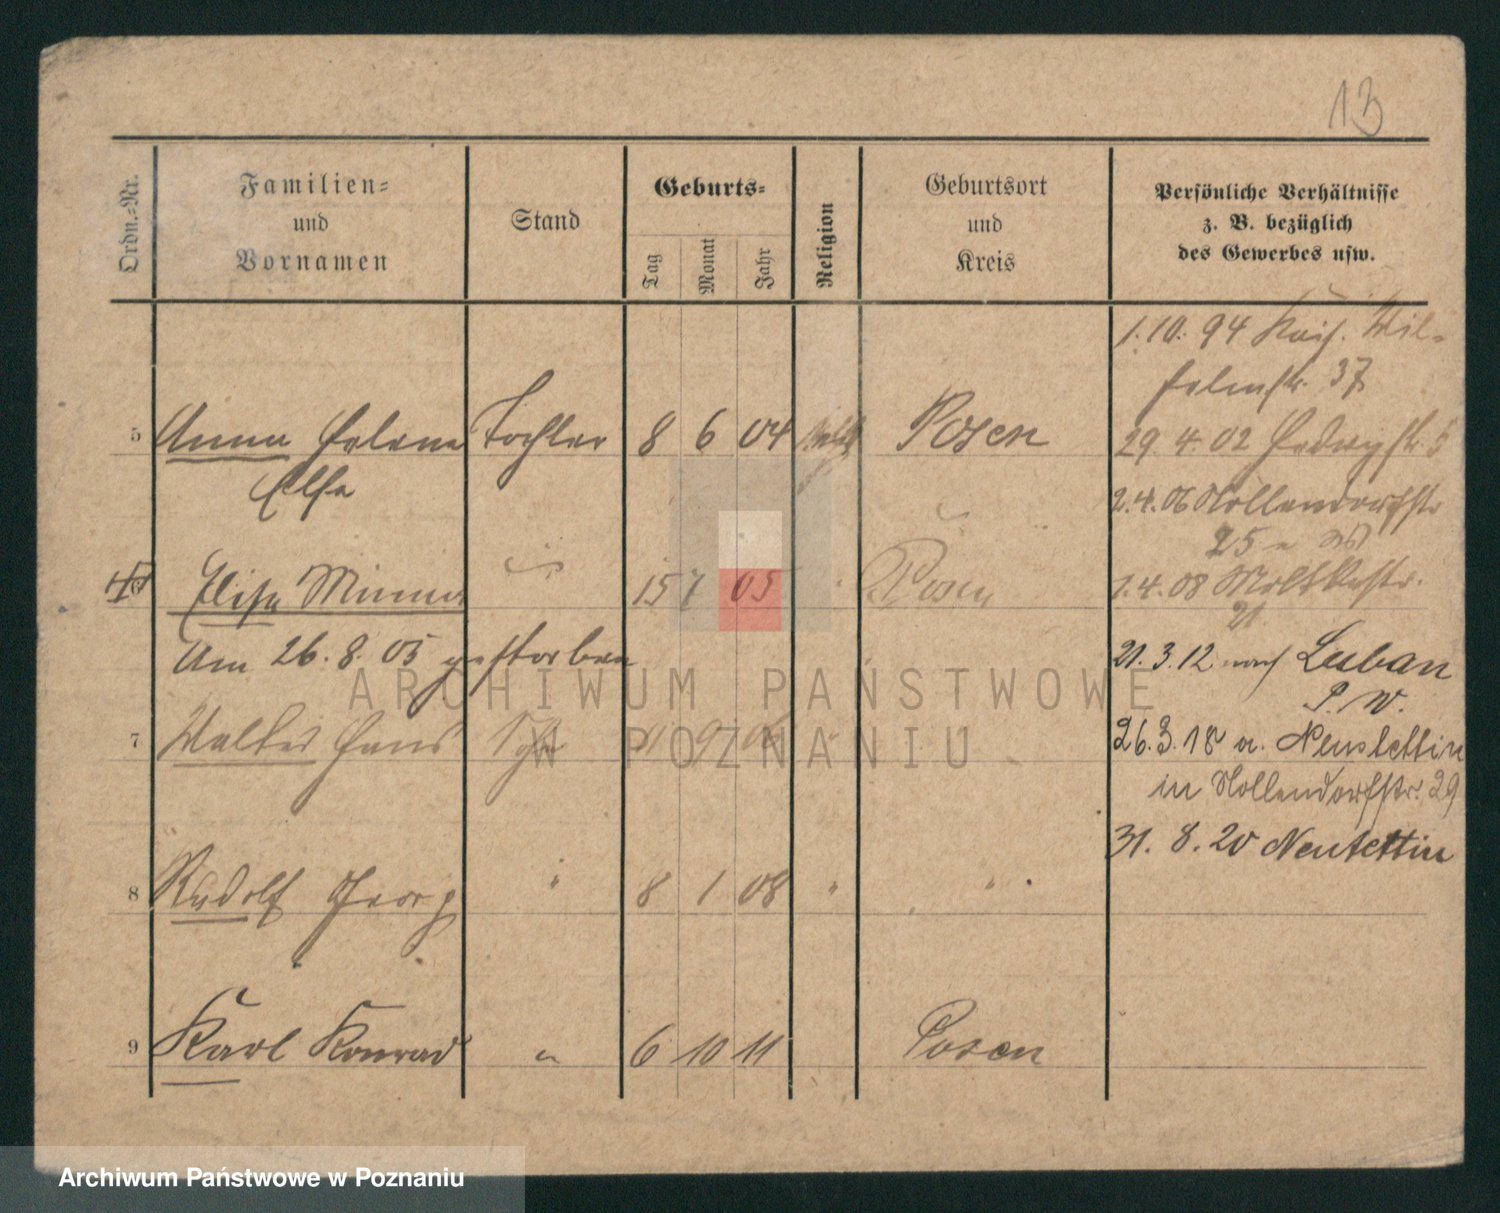 13
Ordn.-Nr.
Familien-
und
Vornamen
Stand
Geburts-
Tag
Monat
Jahr
Religion
Geburtsort
und
Kreis
Persönliche Verhältnisse
z. B. bezüglich
des Gewerbes usw.
1. 10. 94 Kais. Wil-
helmstr. 37
5 Anna Helene Tochter 8 6 04 Posen
29. 4. 02 Hedwigstr. 5
Else
2. 4. 06 Nollendorfstr
25
6 Elise Minna " 15 7 05 " Posen
1. 4. 08 Moltkestr.
21.
Am 26. 8. 05 gestorben
21. 3. 12 nach Luban
P. W.
7 Walter Hans Sohn 9 06 "
26. 3. 18 a. Neustettin
in Nollendorfstr. 29
31. 8. 20 Neustettin
8 Rudolf Georg " 8 1 08 " "
9 Karl Konrad " 6 10 11 Posen
ARCHIWUM PAŃSTWOWE
W POZNANIU
Archiwum Państwowe w Poznaniu